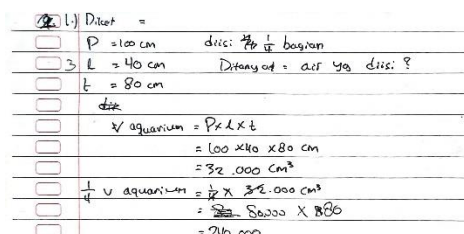 1.) Diket =
P = 100 cm diisi: 1/4 bagian
3 l = 40 cm Ditanyat = air yg diisi ?
t = 80 cm
V aquarium = P x l x t
= 100 x 40 x 80 cm
= 32.000 cm³
1/4 V aquarium = 1/4 x 32.000 cm³
= 80.000 X 80
= 240.000